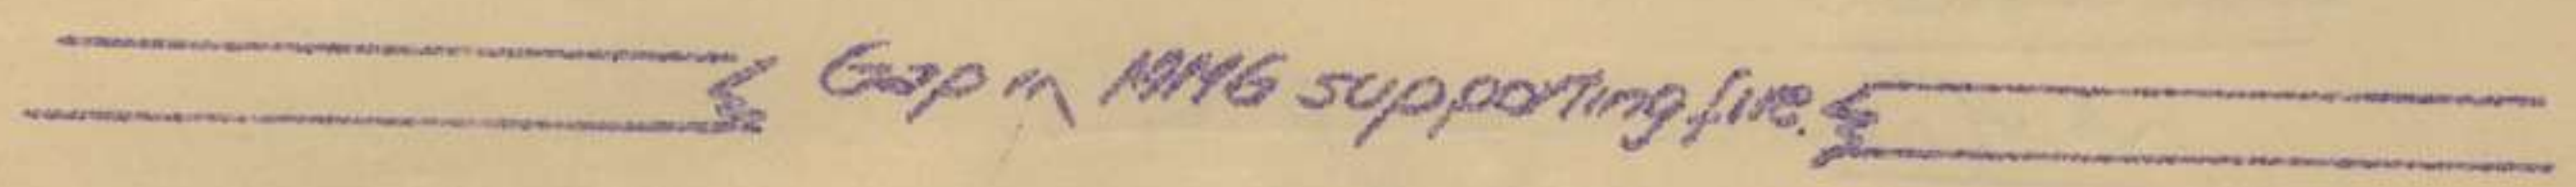 Gap in MMG supporting fire.